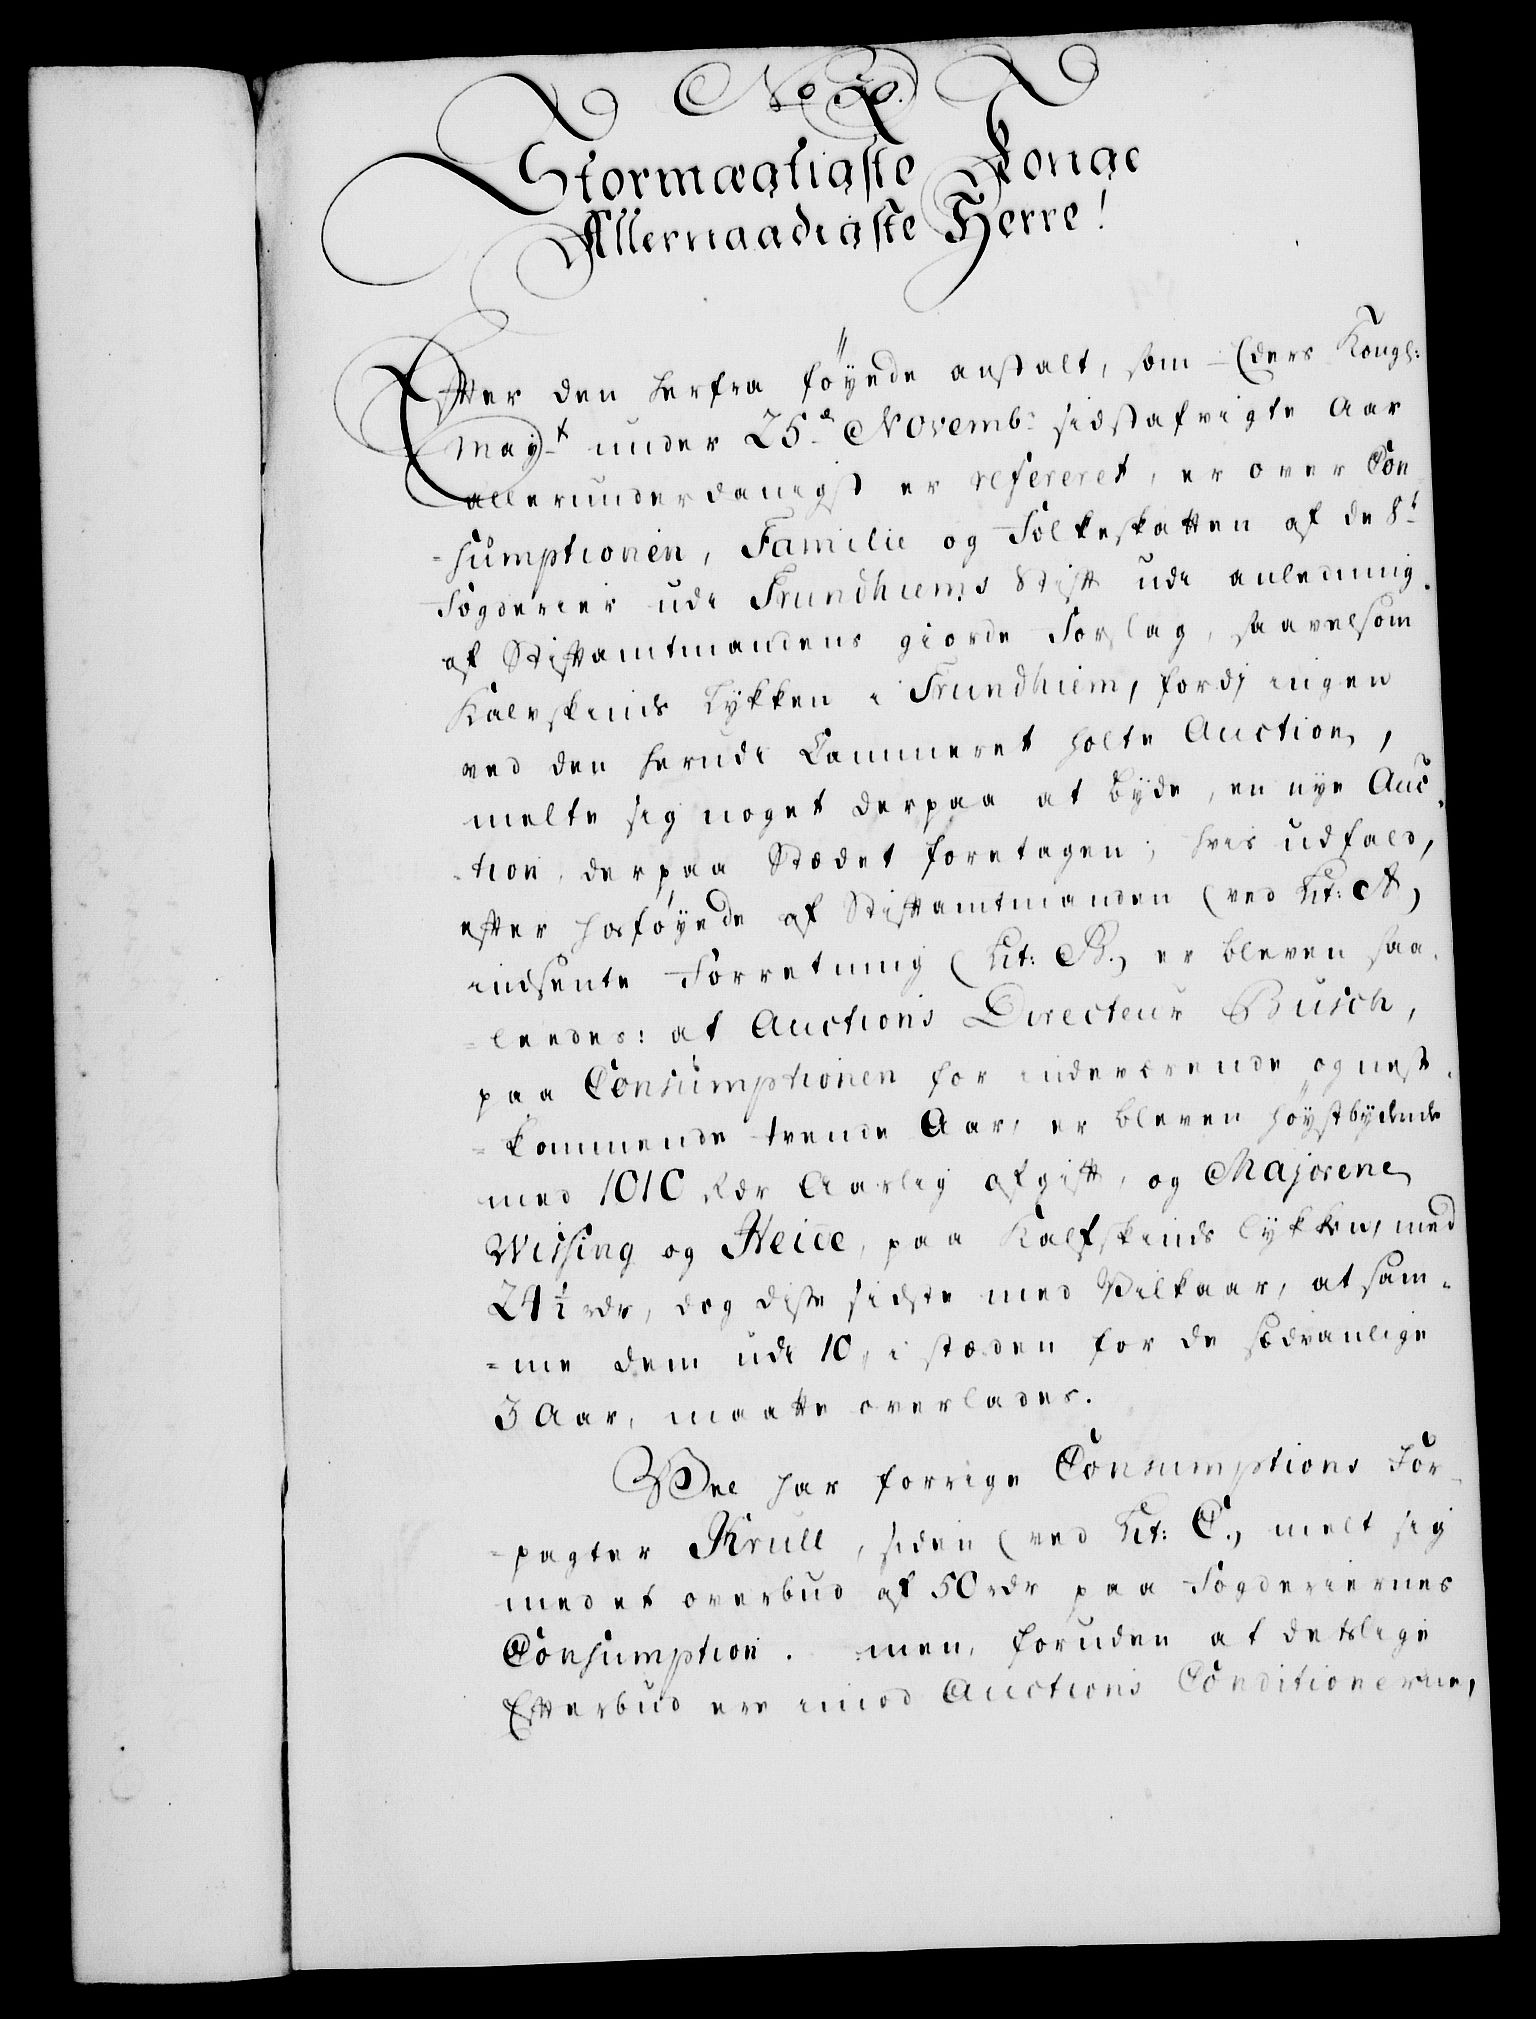 No 20.
Stormægtigste Konge
Allernaadigste Herre!
Efter den herfra föyede anstalt, som Eders Kongl:
May.t under 25.de Novembr sidstafvigte Aar
allerunderdanigst er refereret, er over Con
=sumptionen, Familie og Folkeskatten af de 8t
Fogderier udi Trundhiems Stift udi anledning
af Stiftamtmandens giorde Forslag, saavelsom
Kalvskinds Lykken i Trundhiem, fordj ingen
ved den herudi Cammeret holte Auction,
melte sig noget derpaa at byde, en nye Auc
-tion derpaa Stædet foretagen; hvis udfald,
efter hosföyede af Stiftamtmanden (ved Lit: A)
indsente Forretning (Lit: B.) er bleven saa
=ledes: at Auctions Directeur Busch,
paa Consumptionen for indeværende og nest
=kommende trende Aar, er bleven höystbydende
med 1010 rdr Aarlig afgift, og Majorene
Wissing og Heice, paa Kalfskinds lykken, med
24½ rdr, dog disse sidste med Vilkaar, at sam=
=me dem udi 10, i stæden for de sædvanlige
3 Aar, maatte overlades.
Vel har forrige Consumptions For
=pagter Krull, siden (ved Lit: C.) melt sig
med et overbud af 50 rdr paa Fogderiernes
Consumption. men, foruden at detslige
Efterbud ere imod Auctions Conditionerne,